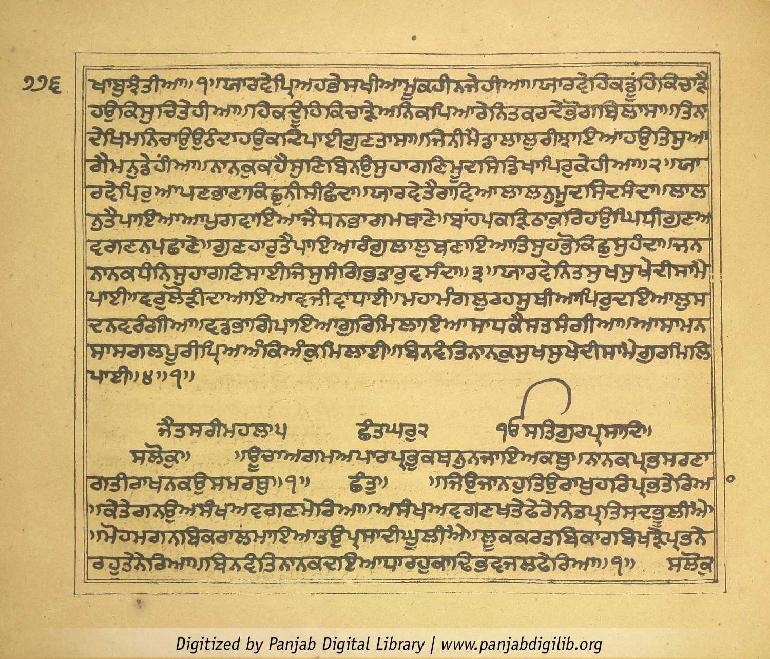 ੭੭੬
ਖਾਬੁਡਿਤੀਆ॥੧॥ਯਾਰਵੇਪ੍ਰਿਅਹਭੇਸਖੀਆਮੂਕਹੀਨਜੇਹੀਆ॥ਯਾਰਵੇਹਿਕਡੂੰਹਿਕਿਚਾੜੈ
ਹਉਕਿਸੁਚਿਤੇਹੀਆ॥ਹਿਕਦੂੰਹਿਕਿਚਾੜੇਅਨਿਕਪਿਆਰੇਨਿਤਕਰਦੇਭੋਗਬਿਲਾਸਾ॥ਤਿਨਾ
ਦੇਖਿਮਨਿਚਾਉਉਠੰਦਾਹਉਕਦਿਪਾਈਗੁਣਤਾਸਾ॥ਜਿਨੀਮੈਡਾਲਾਲੁਰੀਝਾਇਆਹਉਤਿਸੁਆ
ਗੈਮਨੁਡੇਂਹੀਆ॥ਨਾਨਕੁਕਹੈਸੁਣਿਬਿਨਉਸੁਹਾਗਣਿਮੂਦਸਿਡਿਖਾਪਿਰੁਕੇਹੀਆ॥੨॥ਯਾ
ਰਵੇਪਿਰੁਆਪਣਭਾਣਾਕਿਛੁਨੀਸੀਛੰਦਾ॥ਯਾਰਵੇਤੈਰਾਵਿਆਲਾਲਨੁਮੂਦਸਿਦਸੰਦਾ॥ਲਾਲ
ਨੁਤੈਪਾਇਆਆਪੁਗਵਾਇਆਜੈਧਨਭਾਗਮਥਾਣੇ॥ਬਾਂਹਪਕੜਿਠਾਕੁਰਿਹਉਘਿਧੀਗੁਣਅ
ਵਗਣਨਪਛਾਣੇ॥ਗੁਣਹਾਰੁਤੈਪਾਇਆਰੰਗੁਲਾਲੁਬਣਾਇਆਤਿਸੁਹਭੋਕਿਛੁਸੁਹੰਦਾ॥ਜਨ
ਨਾਨਕਧੰਨਿਸੁਹਾਗਣਿਸਾਈਜਿਸੁਸੰਗਿਭਤਾਰੁਵਸੰਦਾ॥੩॥ਯਾਰਵੇਨਿਤਸੁਖਸੁਖੇਦੀਸਾਮੈ
ਪਾਈ॥ਵਰੁਲੋੜੀਦਾਆਇਆਵਜੀਵਾਧਾਈ॥ਮਹਾਮੰਗਲੁਰਹਸੁਥੀਆਪਿਰੁਦਇਆਲੁਸ
ਦਨਵਰੰਗੀਆ॥ਵਡਭਾਗਿਪਾਇਆਗੁਰਿਮਿਲਾਇਆਸਾਧਕੈਸਤਸੰਗੀਆ॥ਆਸਾਮਨ
ਸਾਸਗਲਪੂਰੀਪ੍ਰਿਅਅੰਕਿਅੰਕੁਮਿਲਾਈ॥ਬਿਨਵੰਤਿਨਾਨਕੁਸੁਖਸੁਖੇਦੀਸਾਮੈਗੁਰਮਿਲਿ
ਪਾਈ॥੪॥੧॥
ਜੈਤਸਰੀਮਹਲਾ੫ ਛੰਤਘਰੁ੨ ੴਸਤਿਗੁਰਪ੍ਰਸਾਦਿ॥
ਸਲੋਕੁ॥ ॥ਊਚਾਅਗਮਅਪਾਰਪ੍ਰਭੁਕਥਨੁਨਜਾਇਅਕਥੁ॥ਨਾਨਕਪ੍ਰਭਸਰਣਾ
ਗਤੀਰਾਖਨਕਉਸਮਰਥੁ॥੧॥ ਛੰਤੁ॥ ॥ਜਿਉਜਾਨਹੁਤਿਉਰਾਖੁਹਰਿਪ੍ਰਭਤੇਰਿਆ
॥ਕੇਤੇਗਨਉਅਸੰਖਅਵਗਣਮੇਰਿਆ॥ਅਸੰਖਅਵਗਣਖਤੇਫੇਰੇਨਿਤਪ੍ਰਤਿਸਦਭੂਲੀਐ
॥ਮੋਹਮਗਨਬਿਕਰਾਲਮਾਇਆਤਉਪ੍ਰਸਾਦੀਘੂਲੀਐ॥ਲੂਕਕਰਤਬਿਕਾਰਬਿਖੜੇਪ੍ਰਭਨੇ
ਰਹੂਤੇਨੇਰਿਆ॥ਬਿਨਵੰਤਿਨਾਨਕਦਇਆਧਾਰਹੁਕਾਢਿਭਵਜਲਫੇਰਿਆ॥੧॥ ਸਲੋਕੁ
Digitized by Panjab Digital Library | www.panjabdigilib.org